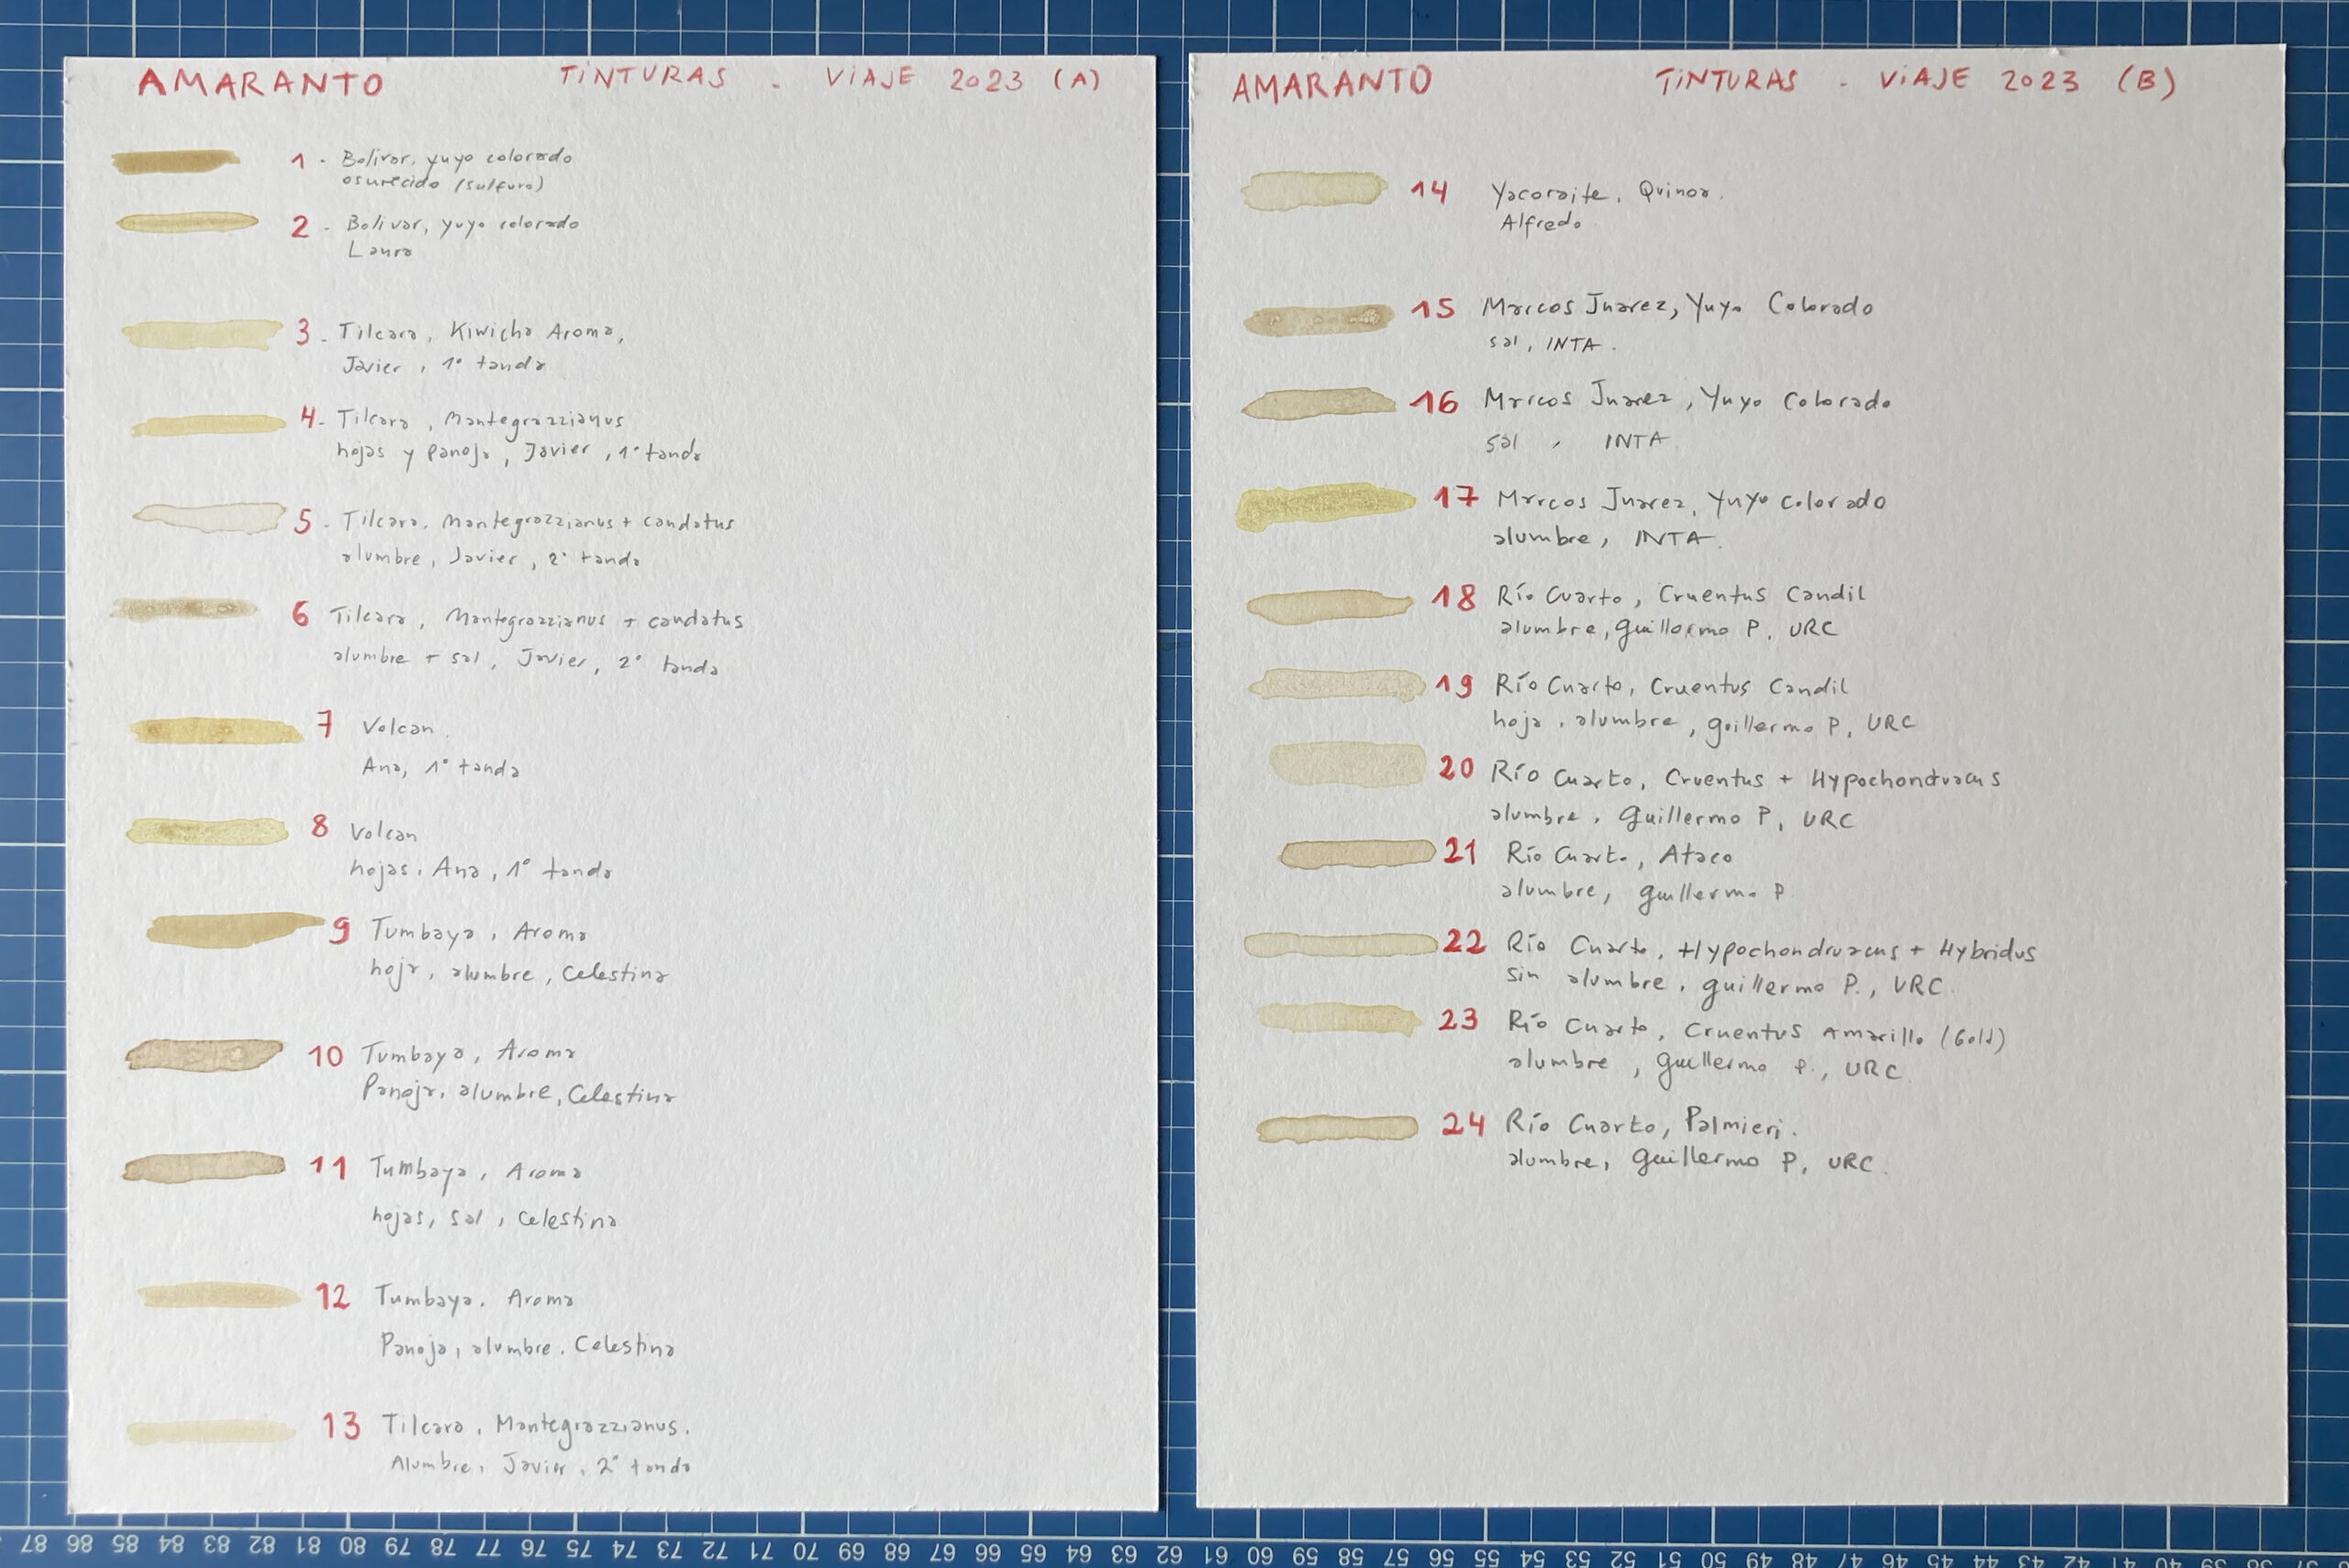 AMARANTO TINTURAS - VIAJE 2023 (A)
1 - Bolivar, yuyo colorado
osurecido (sulfuro)
2 - Bolivar, yuyo colorado
Laura
3 - Tilcara, Kiwicha Aroma,
Javier, 1° tanda
4 - Tilcara, Mantegrazzianus
hojas y Panoja, Javier, 1° tanda
5 - Tilcara, Mantegrazzianus + caudatus
alumbre, Javier, 2° tanda
6 Tilcara, Mantegrazzianus + caudatus
alumbre + sal, Javier, 2° tanda
7 Volcan
Ana, 1° tanda
8 Volcan
hojas, Ana, 1° tanda
9 Tumbaya, Aroma
hoja, alumbre, Celestina
10 Tumbaya, Aroma
Panoja, alumbre, Celestina
11 Tumbaya, Aroma
hojas, sal, Celestina
12 Tumbaya, Aroma
Panoja, alumbre, Celestina
13 Tilcara, Mantegrazzianus.
Alumbre, Javier, 2° tanda
AMARANTO TINTURAS - VIAJE 2023 (B)
14 Yacoraite, Quinoa.
Alfredo
15 Marcos Juarez, Yuyo Colorado
sal, INTA.
16 Marcos Juarez, Yuyo Colorado
sal, INTA
17 Marcos Juarez, Yuyo Colorado
alumbre, INTA.
18 Río Cuarto, Cruentus Candil
alumbre, Guillermo P, URC
19 Río Cuarto, Cruentus Candil
hoja, alumbre, Guillermo P, URC
20 Río Cuarto, Cruentus + Hypochondruacus
alumbre, Guillermo P, URC
21 Río Cuarto, Ataco
alumbre, Guillermo P
22 Río Cuarto, Hypochondruacus + Hybridus
sin alumbre, Guillermo P., URC.
23 Río Cuarto, Cruentus Amarillo (Gold)
alumbre, Guillermo P., URC
24 Río Cuarto, Palmieri.
alumbre, Guillermo P, URC.
87 86 85 84 83 82 81 80 79 78 77 76 75 74 73 72 71 70 69 68 67 66 65 64 63 62 61 60 59 58 57 56 55 54 53 52 51 50 49 48 47 46 45 44 43 42 41 40 39 38